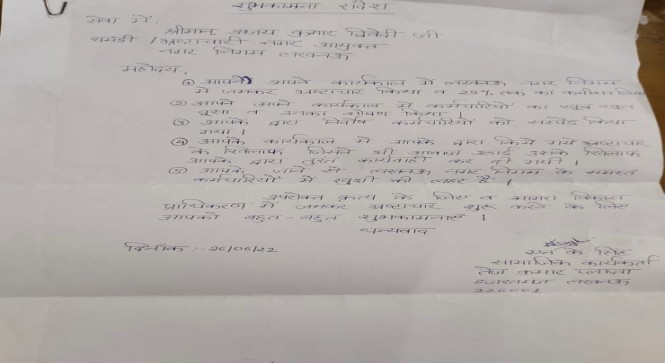 शुभकामना संदेश
सेवा में,
श्रीमान अजय कुमार द्विवेदी जी
घमंडी / भ्रष्टाचारी नगर आयुक्त
नगर निगम लखनऊ
महोदय,
① आपने अपने कार्यकाल में लखनऊ नगर निगम
में जमकर भ्रष्टाचार किया व 25% तक का कमीशन लिया
② आपने अपने कार्यकाल में कर्मचारियों का खून
चूसा व उनका शोषण किया ।
③ आपके द्वारा निर्दोष कर्मचारियों को सस्पेंड किया
गया ।
④ आपके कार्यकाल में आपके द्वारा किये गये भ्रष्टाचार
के खिलाफ जिसने भी आवाज उठाई उसके खिलाफ
आपके द्वारा तुरंत कार्यवाही कर दी गयी ।
⑤ आपके जाने से लखनऊ नगर निगम के समस्त
कर्मचारियों में खुशी की लहर है ।
उपरोक्त कृत्य के लिए व आगरा विकास
प्राधिकरण में जमकर भ्रष्टाचार शुरू करने के लिए
आपको बहुत-बहुत शुभकामनाएं ।
धन्यवाद
दिनांक :- 26/06/22
एन के सिंह
सामाजिक कार्यकर्ता
तेज कुमार प्लाजा
हजरतगंज लखनऊ
226001